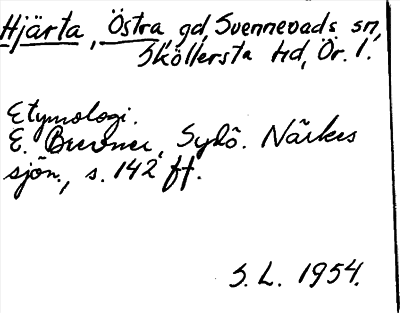 Hjärta, Östra, gd, Svennevads sn,
Sköllersta hd, Ör. l.
Etymologi.
E. Brevner, Sydö. Närkes
sjön., s. 142 ff.
S. L. 1954.